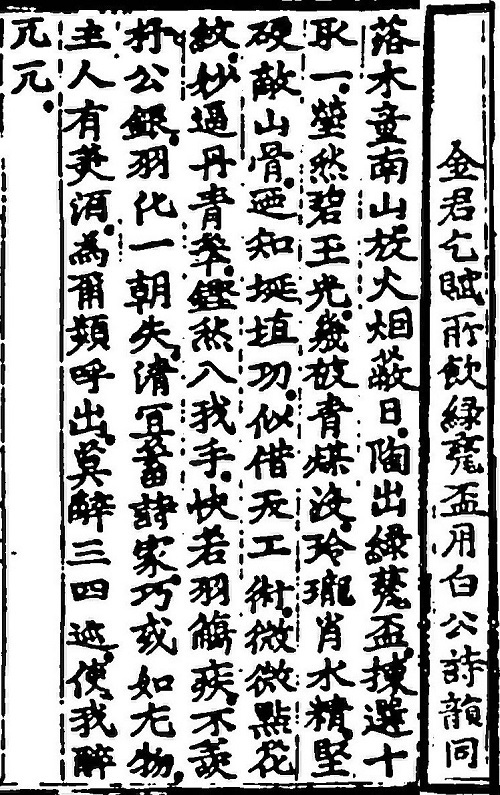 金君乞賦所飲緑甆盃用白公詩韻同
落木童南山。放火烟蔽日。陶出緑甆盃。揀選十
取一。瑩然碧玉光。幾被青煤沒。玲瓏肖水精。堅
硬敵山骨。迺知埏埴功。似借天工術。微微點花
紋。妙逼丹青筆。鏗然入我手。快若羽觴疾。不羨
杼公銀。羽化一朝失。清宜蓄詩家。巧或如尤物。
主人有美酒。為爾類呼出。莫醉三四巡。使我醉
兀兀。